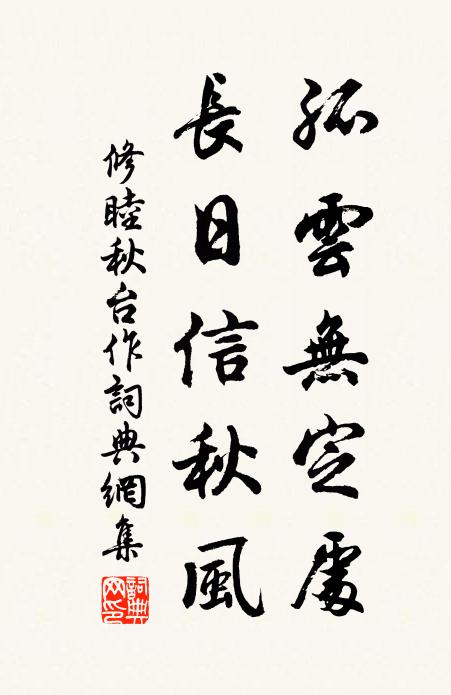 孤雲無定處
長日信秋風
修睦秋台作詞典網集
詞典網印